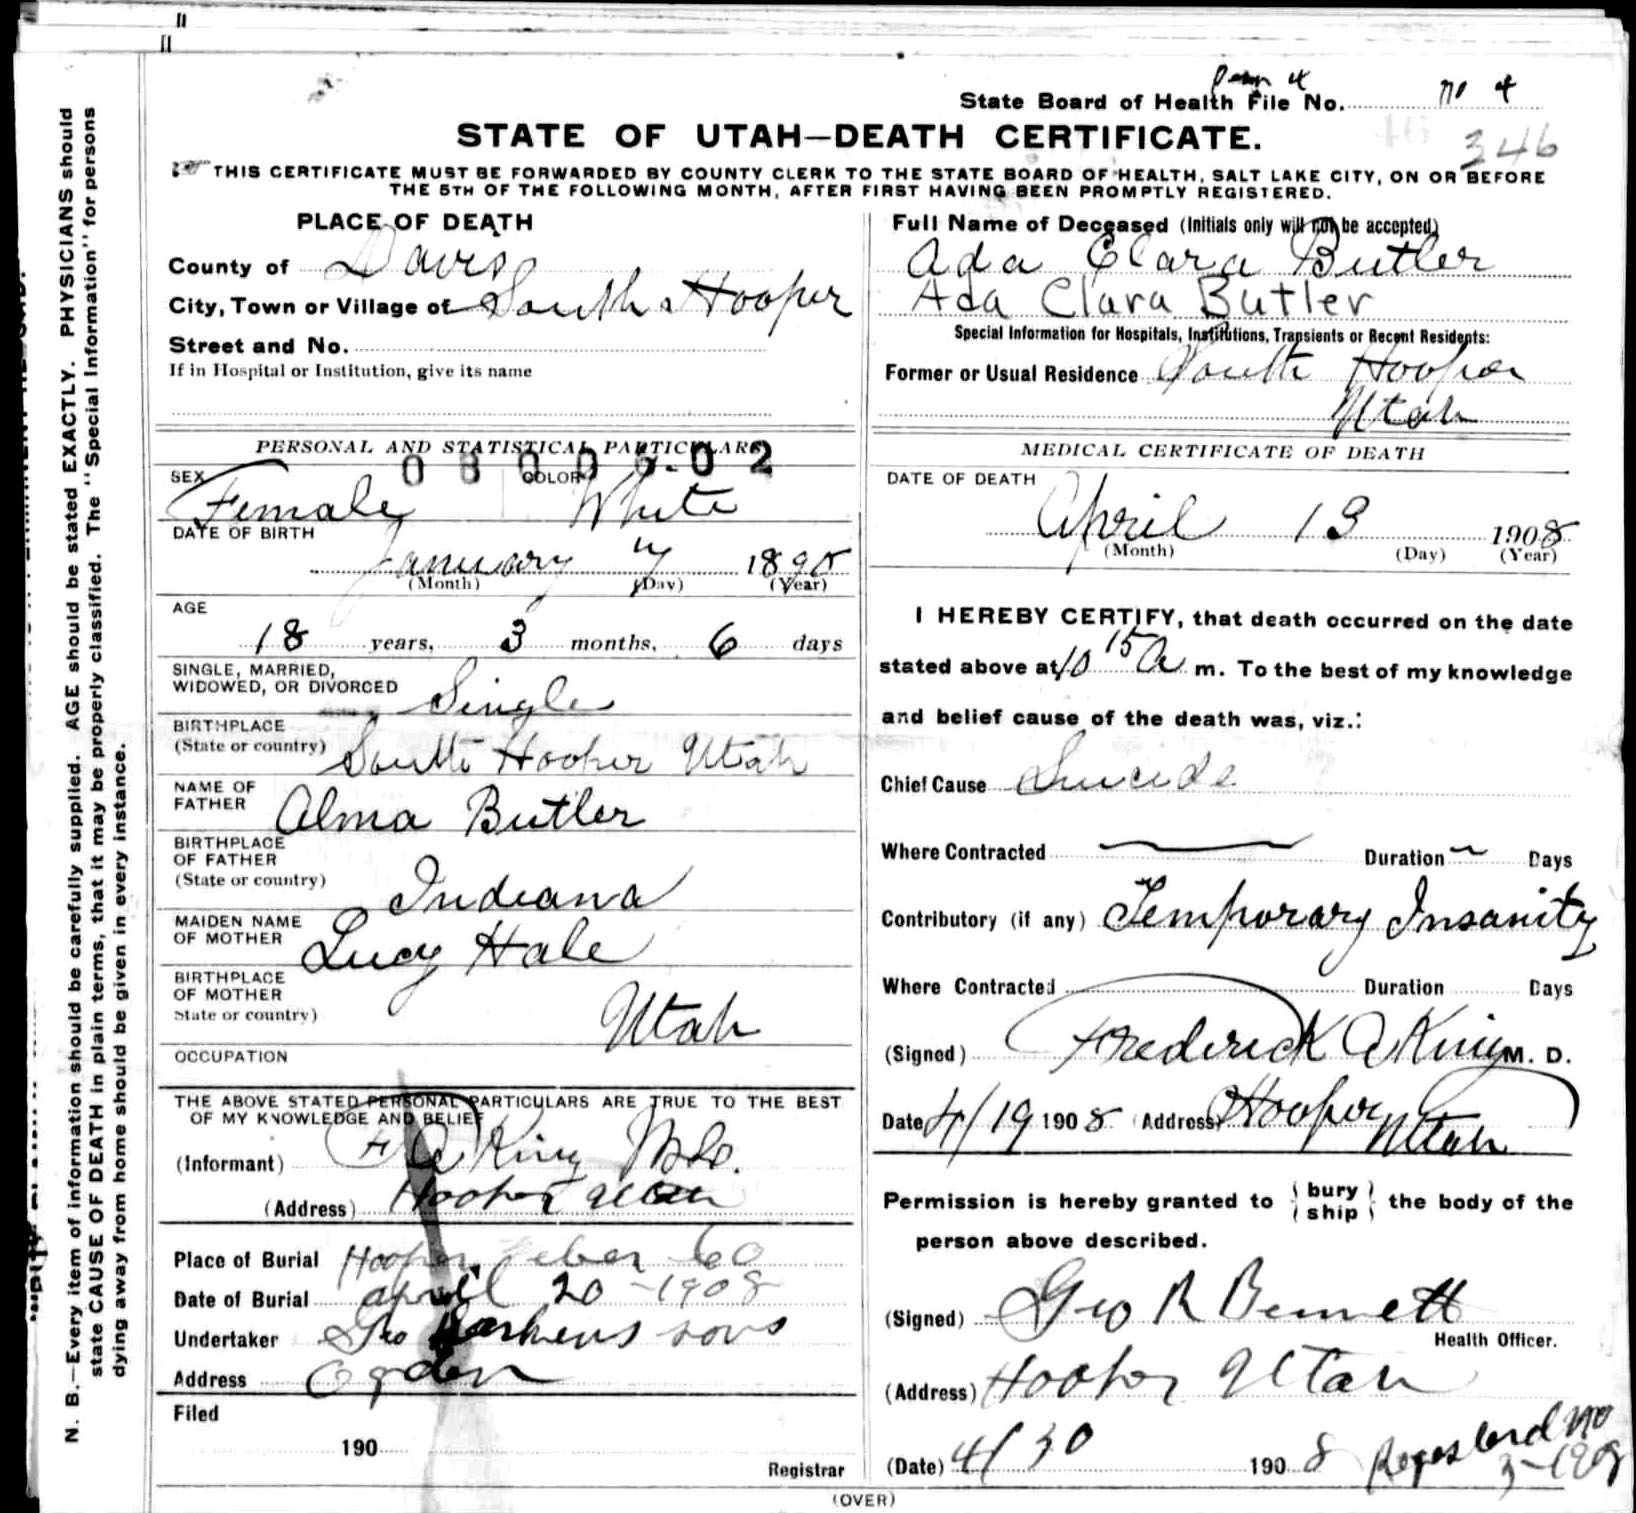 State Board of Health File No. no 4
346
STATE OF UTAH—DEATH CERTIFICATE.
THIS CERTIFICATE MUST BE FORWARDED BY COUNTY CLERK TO THE STATE BOARD OF HEALTH, SALT LAKE CITY, ON OR BEFORE
THE 5TH OF THE FOLLOWING MONTH, AFTER FIRST HAVING BEEN PROMPTLY REGISTERED.
N. B.—Every item of information should be carefully supplied. AGE should be stated EXACTLY. PHYSICIANS should
state CAUSE OF DEATH in plain terms, that it may be properly classified. The "Special Information" for persons
dying away from home should be given in every instance.
PLACE OF DEATH
County of Davis
City, Town or Village of South Hooper
Street and No.
If in Hospital or Institution, give its name
PERSONAL AND STATISTICAL PARTICULARS
SEX Female COLOR White
DATE OF BIRTH
January 7 1890
(Month) (Day) (Year)
AGE
18 years, 3 months, 6 days
SINGLE, MARRIED,
WIDOWED, OR DIVORCED Single
BIRTHPLACE
(State or country) South Hooper Utah
NAME OF
FATHER Alma Butler
BIRTHPLACE
OF FATHER
(State or country) Indiana
MAIDEN NAME
OF MOTHER Lucy Hale
BIRTHPLACE
OF MOTHER
State or country) Utah
OCCUPATION
THE ABOVE STATED PERSONAL PARTICULARS ARE TRUE TO THE BEST
OF MY KNOWLEDGE AND BELIEF
(Informant) F A King M.D.
(Address) Hooper Utah
Place of Burial Hooper Weber Co
Date of Burial April 20 - 1908
Undertaker Geo Larkins sons
Address Ogden
Filed
190
Registrar
Full Name of Deceased (Initials only will not be accepted)
Ada Clara Butler
Ada Clara Butler
Special Information for Hospitals, Institutions, Transients or Recent Residents:
Former or Usual Residence South Hooper
Utah
MEDICAL CERTIFICATE OF DEATH
DATE OF DEATH
April 13 1908
(Month) (Day) (Year)
I HEREBY CERTIFY, that death occurred on the date
stated above at 10 15 A m. To the best of my knowledge
and belief cause of the death was, viz.:
Chief Cause Suicide
Where Contracted — Duration — Days
Contributory (if any) Temporary Insanity
Where Contracted Duration Days
(Signed) Frederick A King M. D.
Date 4/19 1908 (Address) Hooper
Utah
Permission is hereby granted to { bury ship } the body of the
person above described.
(Signed) Geo R Bennett
Health Officer.
(Address) Hooper Utah
(Date) 4/30 1908
(OVER)